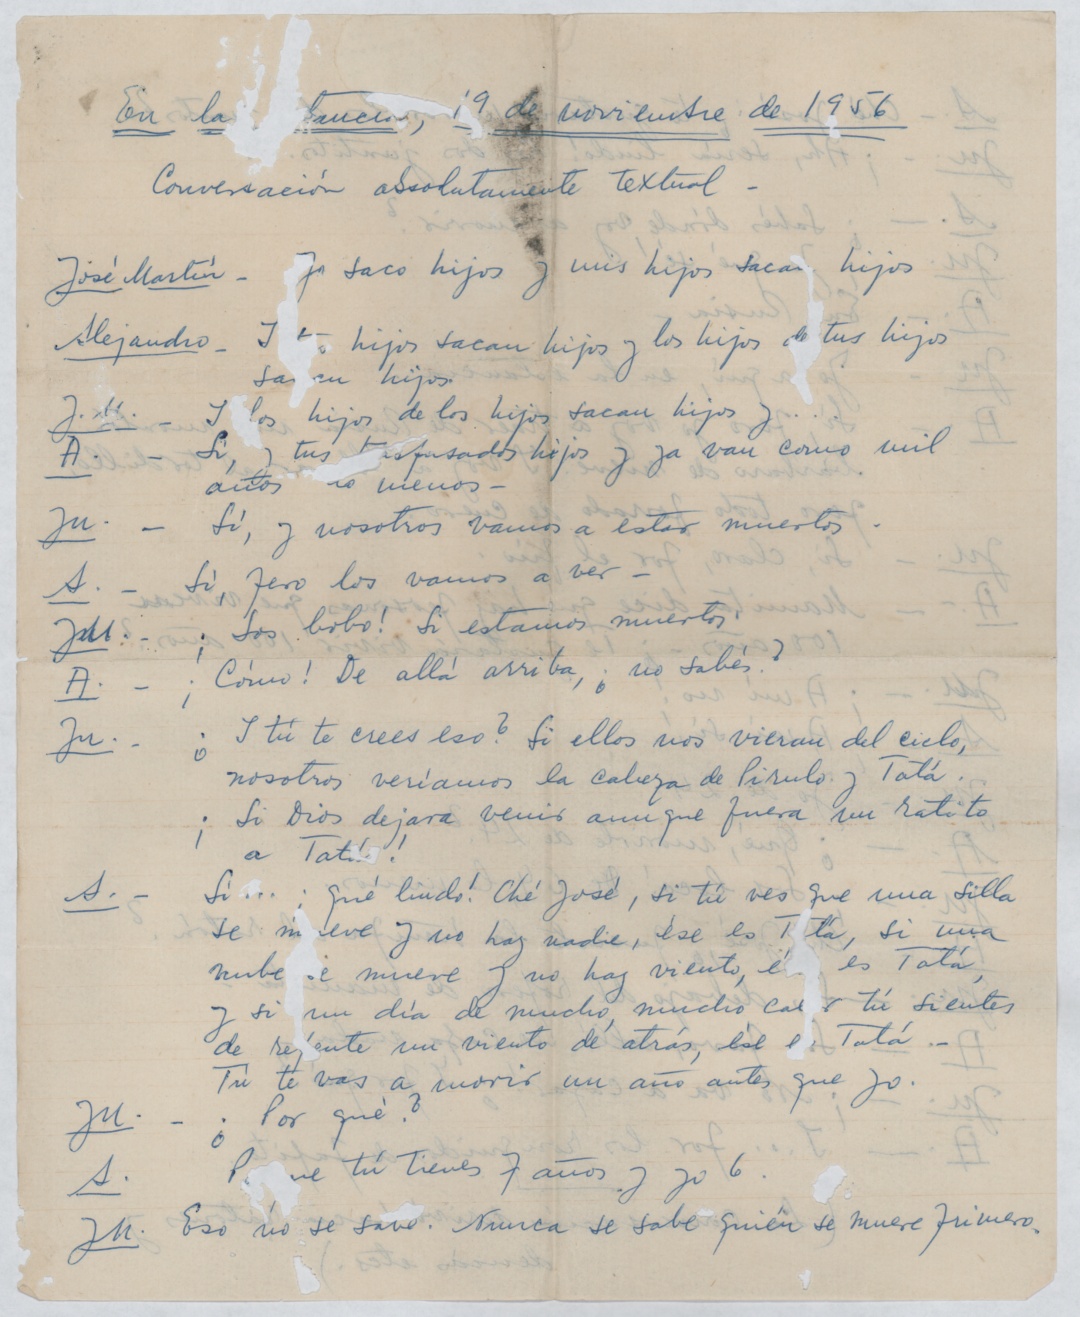 En la tancia, 19 de noviembre de 1956
Conversación absolutamente textual -
José Martín - Yo saco hijos y mis hijos sacan hijos
Alejandro - Y tus hijos sacan hijos y los hijos de tus hijos
sacan hijos.
J.M. - Y los hijos de los hijos sacan hijos y....
A. - Si, y tus hijos y ya van como mil
años no menos -
JM. - Sí, y nosotros vamos a estar muertos.
A. - Si, pero los vamos a ver -
JM. - ¡Sos bobo! Si estamos muertos.
A. - ¡Cómo! De allá arriba, ¿no sabés?
JM. - ¿Y tú te crees eso? Si ellos nos vieran del cielo,
nosotros veríamos la cabeza de Pirulo y Tatá.
¡Si Dios dejara venir aunque fuera un ratito
a Tatá!
A. - Si... ¡qué lindo! Ché José, si tú ves que una silla
se mueve y no hay nadie, ése es Tatá, si una
nube se mueve y no hay viento, és es Tatá,
y si un día de mucho, mucho calor tú sientes
de repente un viento de atrás, ése es Tatá. -
Tú te vas a morir un año antes que yo.
JM. - ¿Por qué?
A. Porque tú tienes 7 años y yo 6.
JM. Eso no se sabe. Nunca se sabe quién se muere primero.